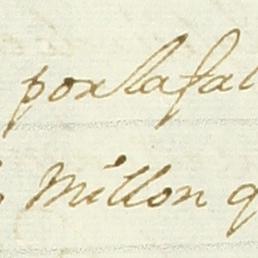 por la fal
Millon q